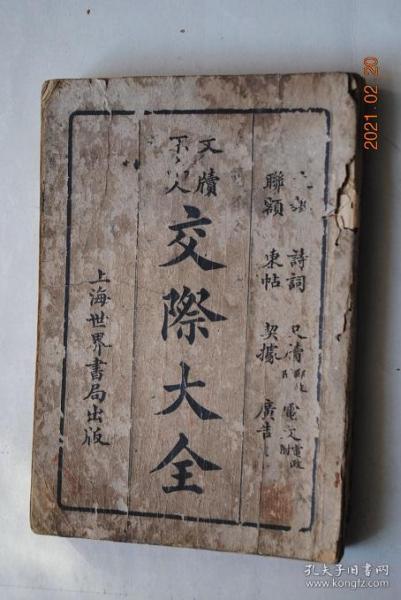 詩詞 尺牘 電文
聯額 柬帖 契據 廣告
文牘
交際大全
上海世界書局出版
2021.02.20
孔夫子旧书网
www.kongfz.com